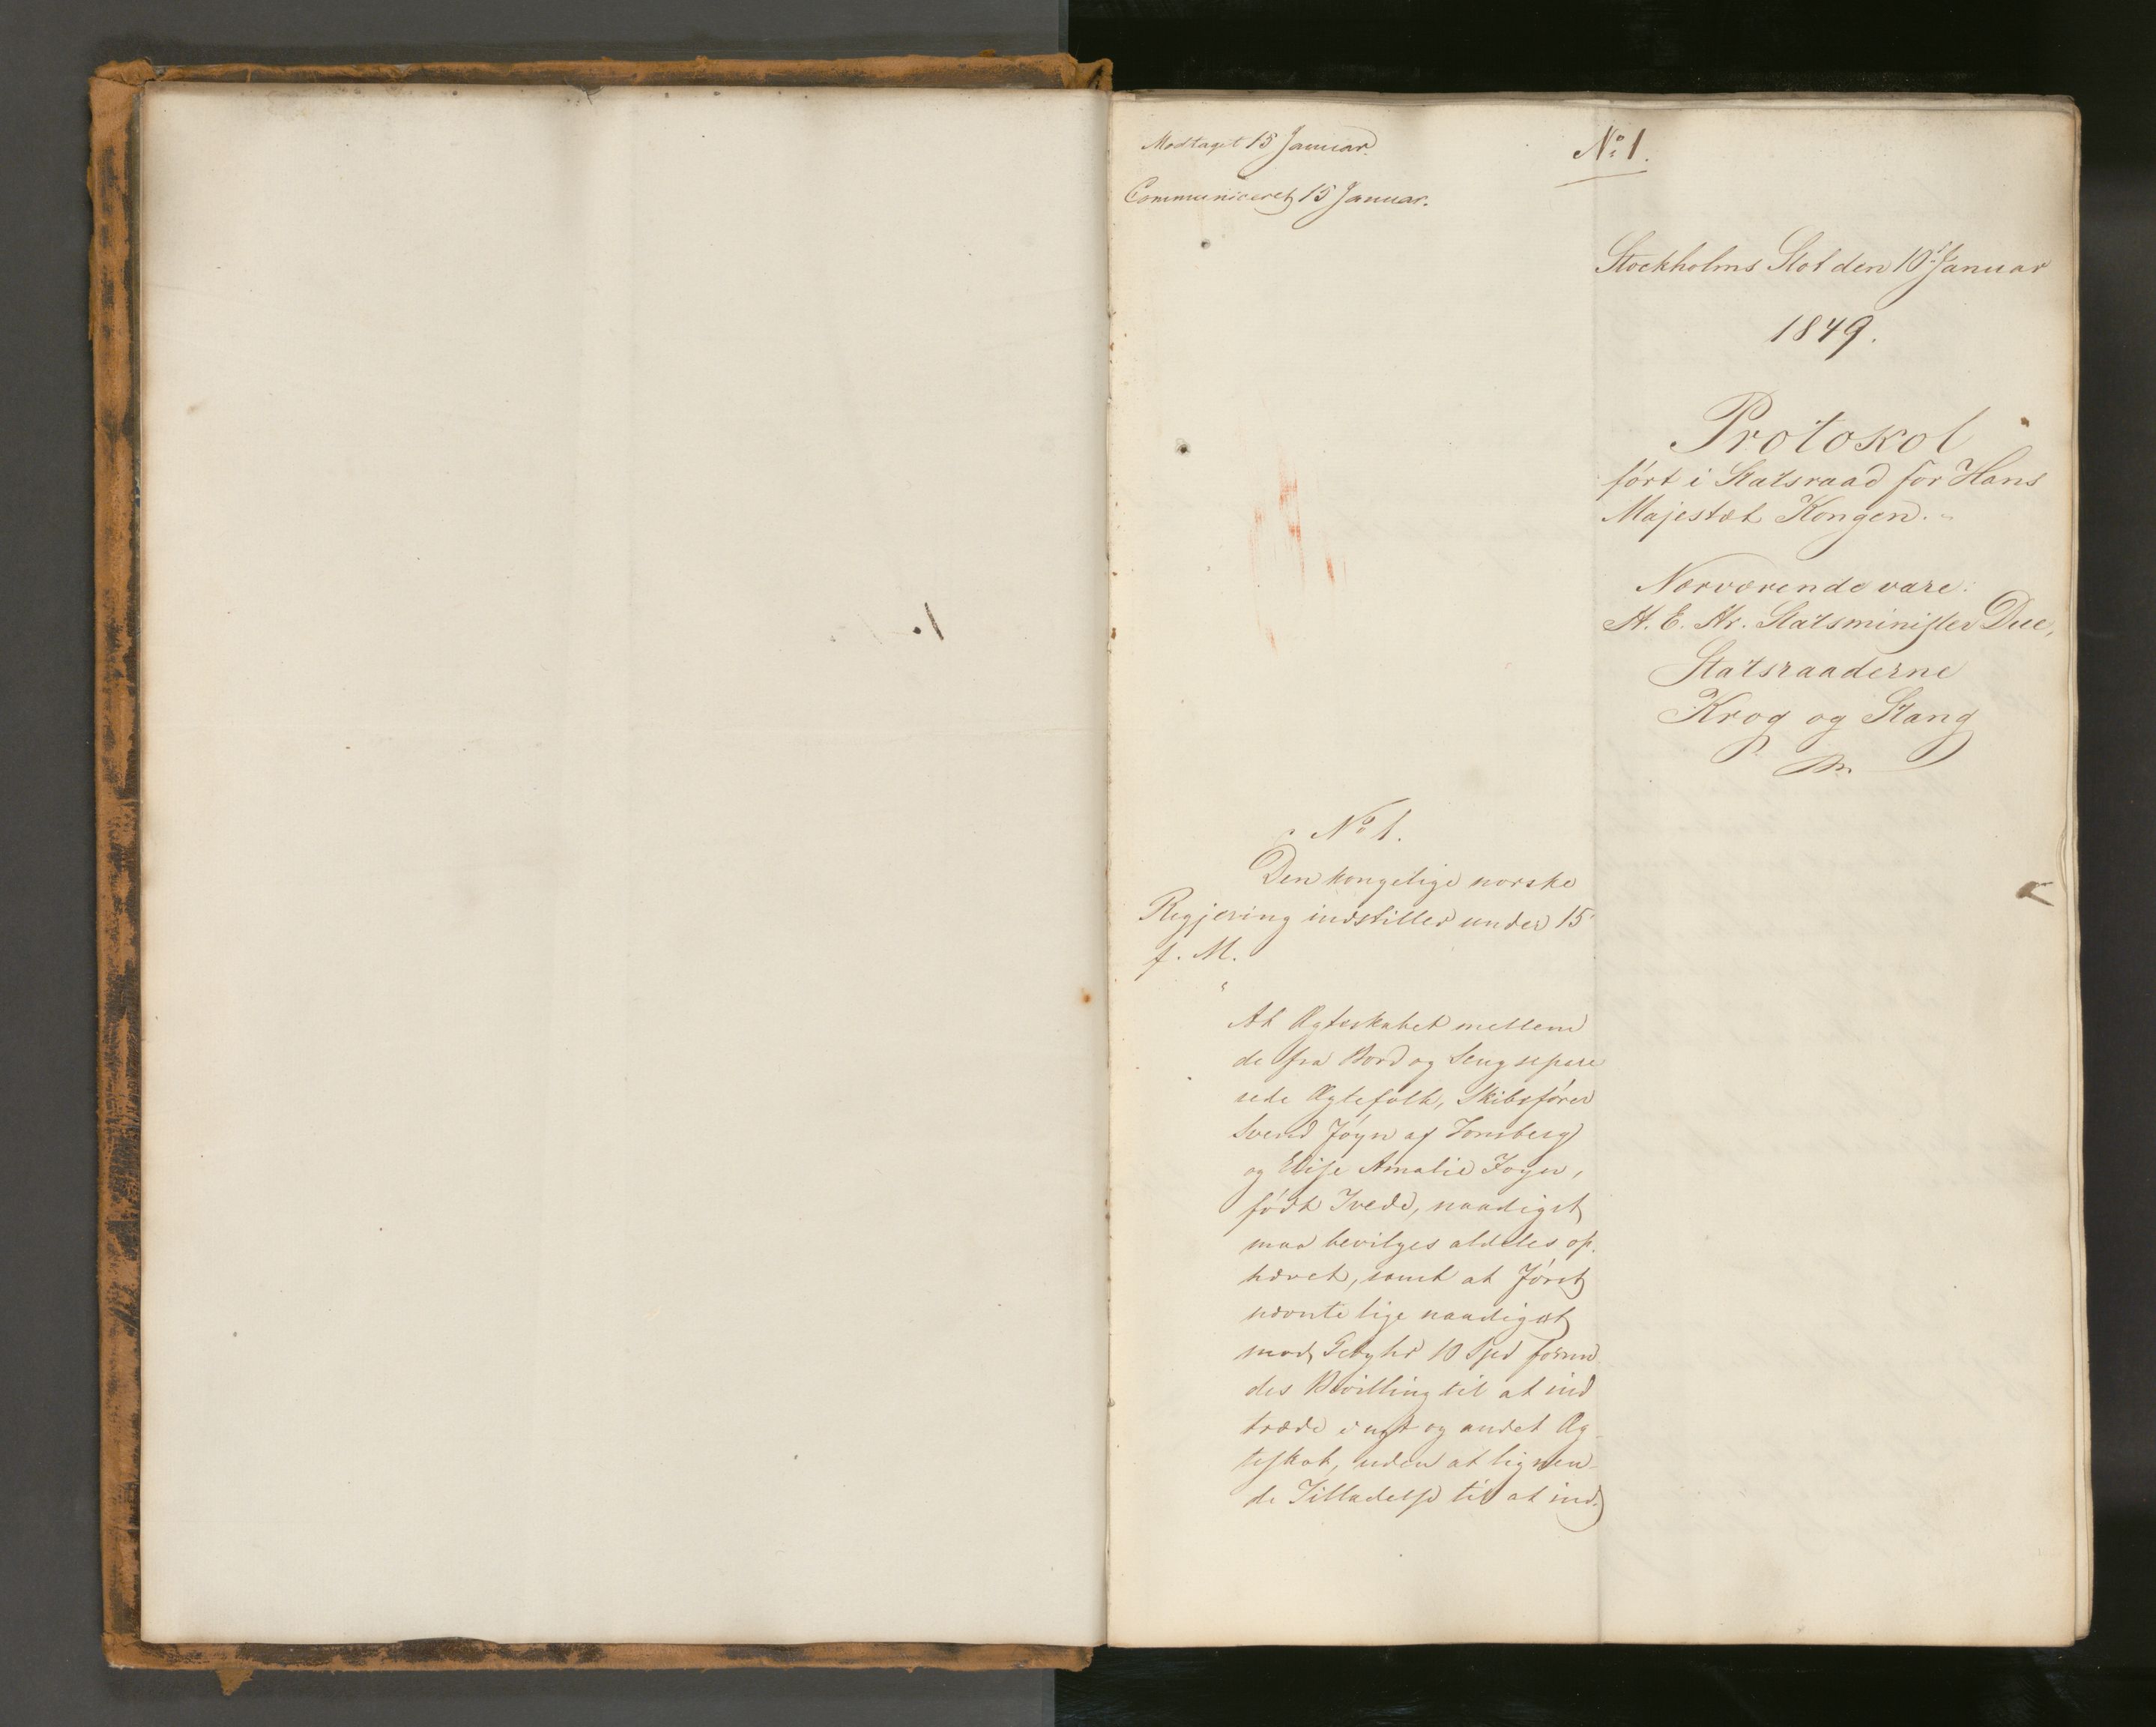 Modtaget 15 Januar.
Communiceret 15 Januar.
No 1.
Stockholms Slot den 10de Januar
1849.
Protokol
ført i Statsraad for Hans
Majestæt Kongen.
Nærværende vare:
H. E. Hr. Statsminister Due,
Statsraaderne
Krog og Stang
No 1.
Den kongelige norske
Regjering indstiller under 15
f. M.
At Ægteskabet mellem
de fra Bord og Seng separe
rede Ægtefolk, Skibsfører
Svend Foyn af Tønsberg
og Elise Amalie Foyn,
født Tvede, naadigst
maa bevilges aldeles op-
hævet, samt at Først
nævnte lige naadigst
mod Gebyhr 10 Spd forun
des Bevilling til at ind
træde i nyt og andet Æg-
teskab, uden at lignen-
de Tilladelse til at ind-